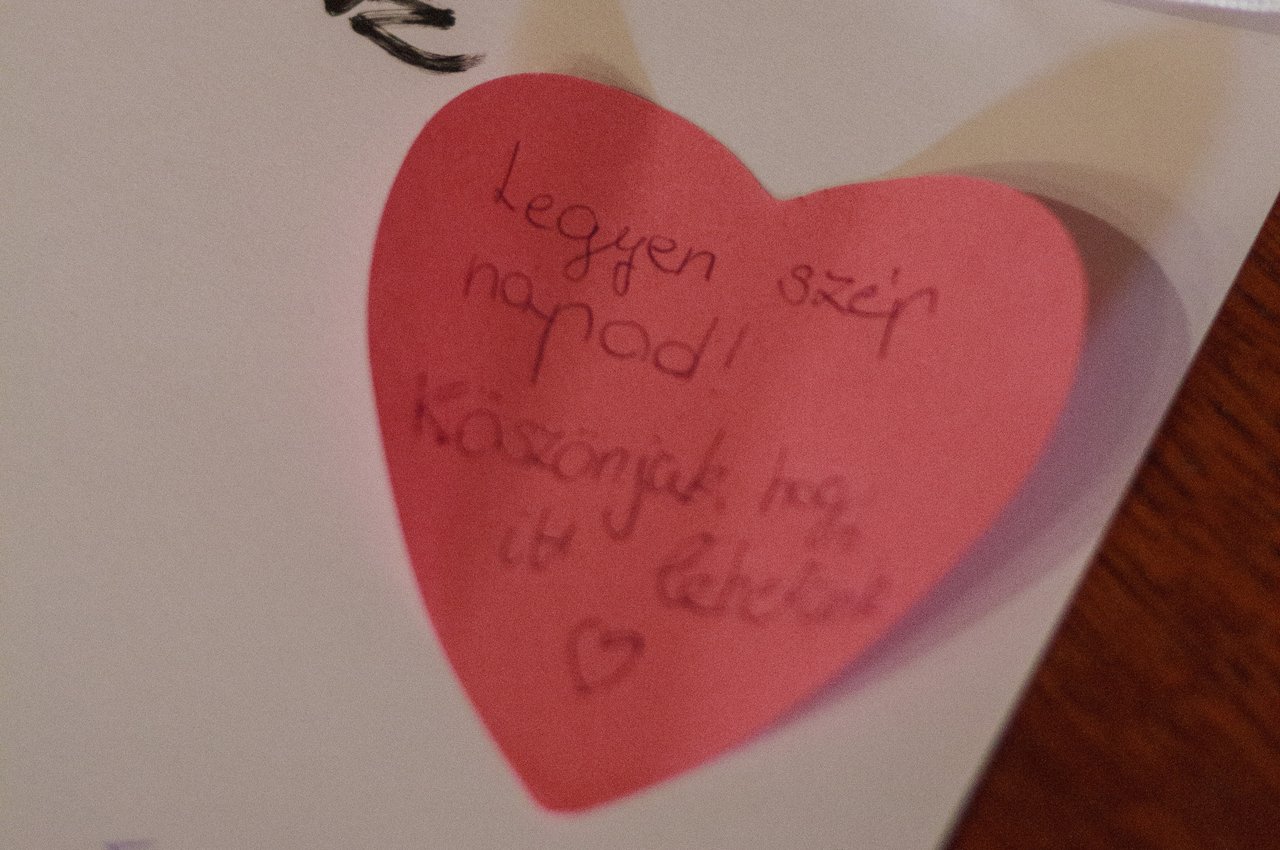 Legyen szép
napod!
Köszönjük, hogy
itt lehetünk